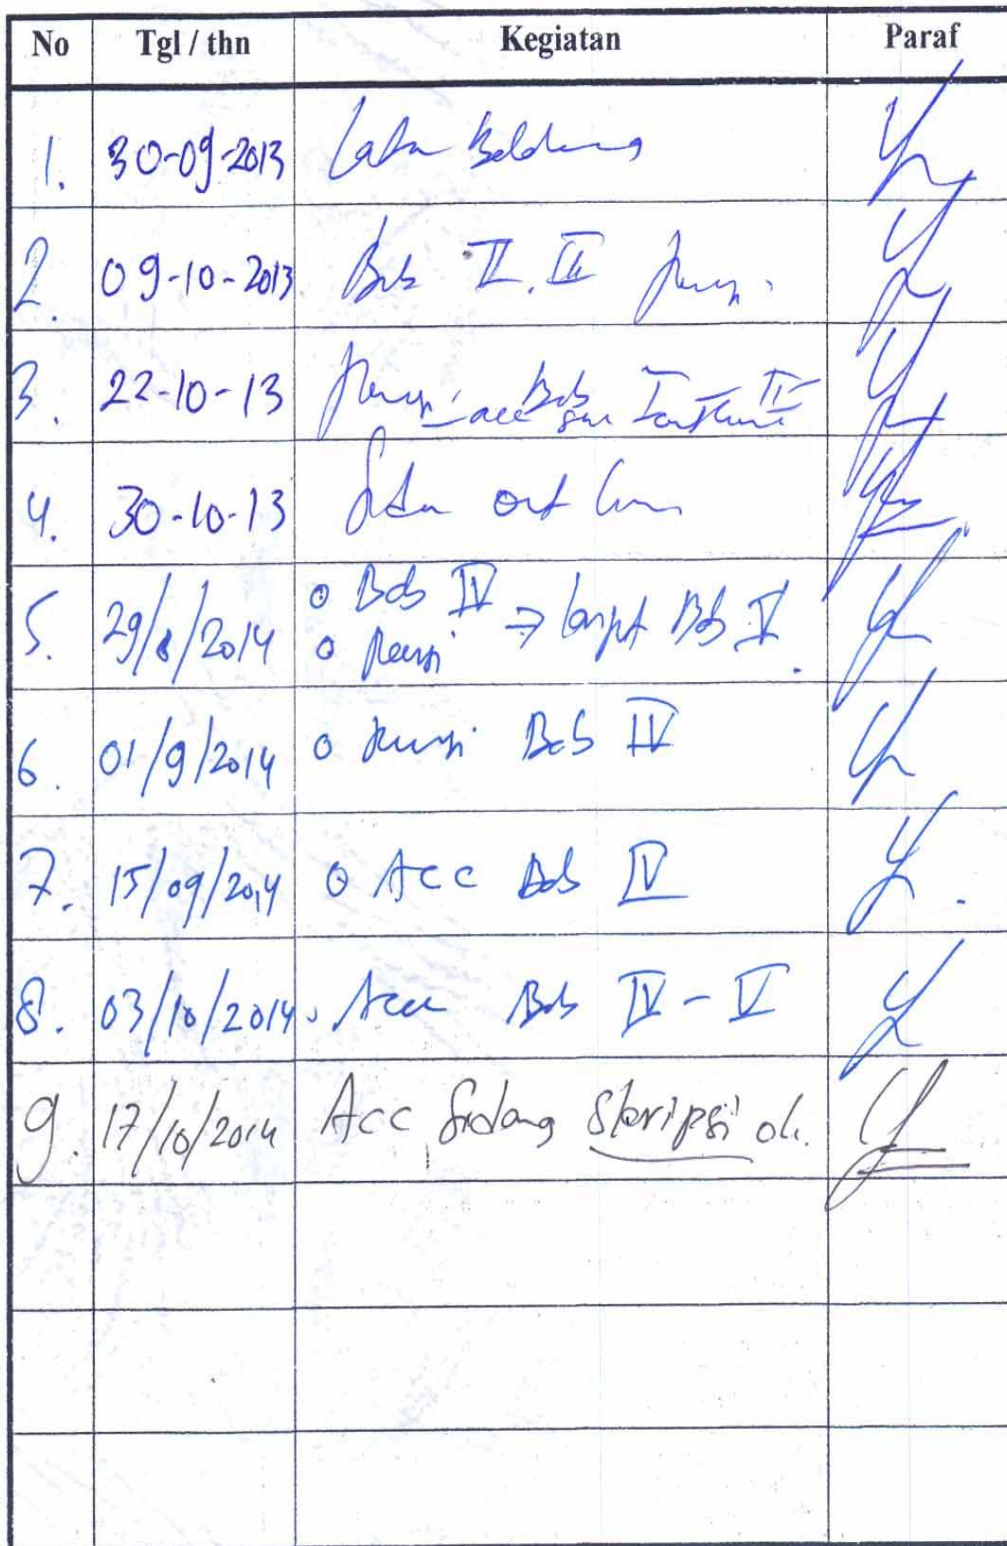 No Tgl / thn Kegiatan Paraf
1. 30-09-2013 Latar Belakang
2. 09-10-2013 Bab II. III Revisi
3. 22-10-13 Revisi Bab I - II
acc outline
4. 30-10-13 out line
5. 29/8/2014 Bab IV → lanjut Bab V.
Revisi
6. 01/9/2014 Revisi Bab IV
7. 15/09/2014 Acc Bab IV
8. 03/10/2014 Acc Bab IV - V
9. 17/10/2014 Acc Sidang Skripsi ok.